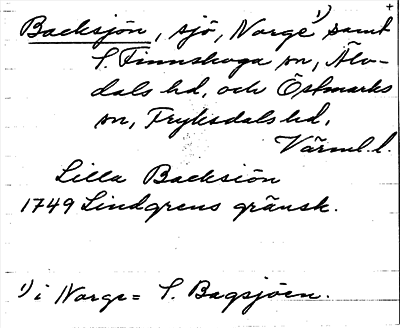 +
Backsjön, sjö, Norge¹⁾ samt
S. Finnskoga sn, Älv-
dals hd, och Östmarks
sn, Fryksdals hd,
Värml. l.
Lilla Backsiön
1749 Lindgrens gränsk.
¹⁾ i Norge = S. Bagsjöen.